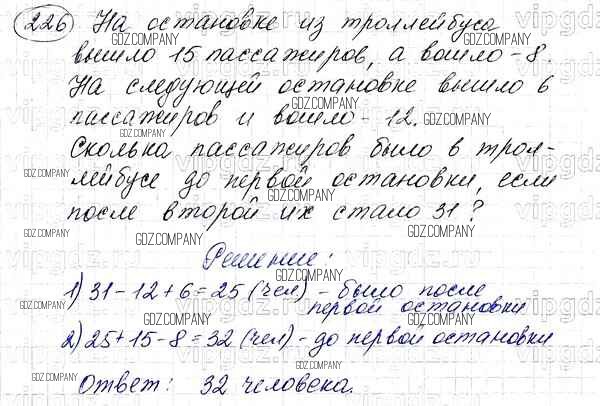 226 На остановке из троллейбуса
вышло 15 пассажиров, а вошло - 8.
На следующей остановке вышло 6
пассажиров и вошло - 12.
Сколька пассажиров было в трол-
лейбусе до первой остановки, если
после второй их стало 31?
Решение:
1) 31 - 12 + 6 = 25 (чел) - было после
первой остановки
2) 25 + 15 - 8 = 32 (чел) - до первой остановки
Ответ: 32 человека.